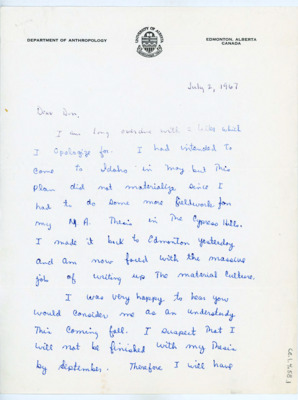 DEPARTMENT OF ANTHROPOLOGY
UNIVERSITY OF ALBERTA
EDMONTON, ALBERTA
CANADA
July 2, 1967
Dear Don,
I am long overdue with a letter which
I apologize for. I had intended to
come to Idaho in May but this
plan did not materialize since I
had to do some more fieldwork for
my M.A. Thesis in the Cypress Hills.
I made it back to Edmonton yesterday
and am now faced with the massive
job of writing up the material culture.
I was very happy to hear you
would consider me as an understudy
this coming fall. I suspect that I
will not be finished with my thesis
by September. Therefore I will have